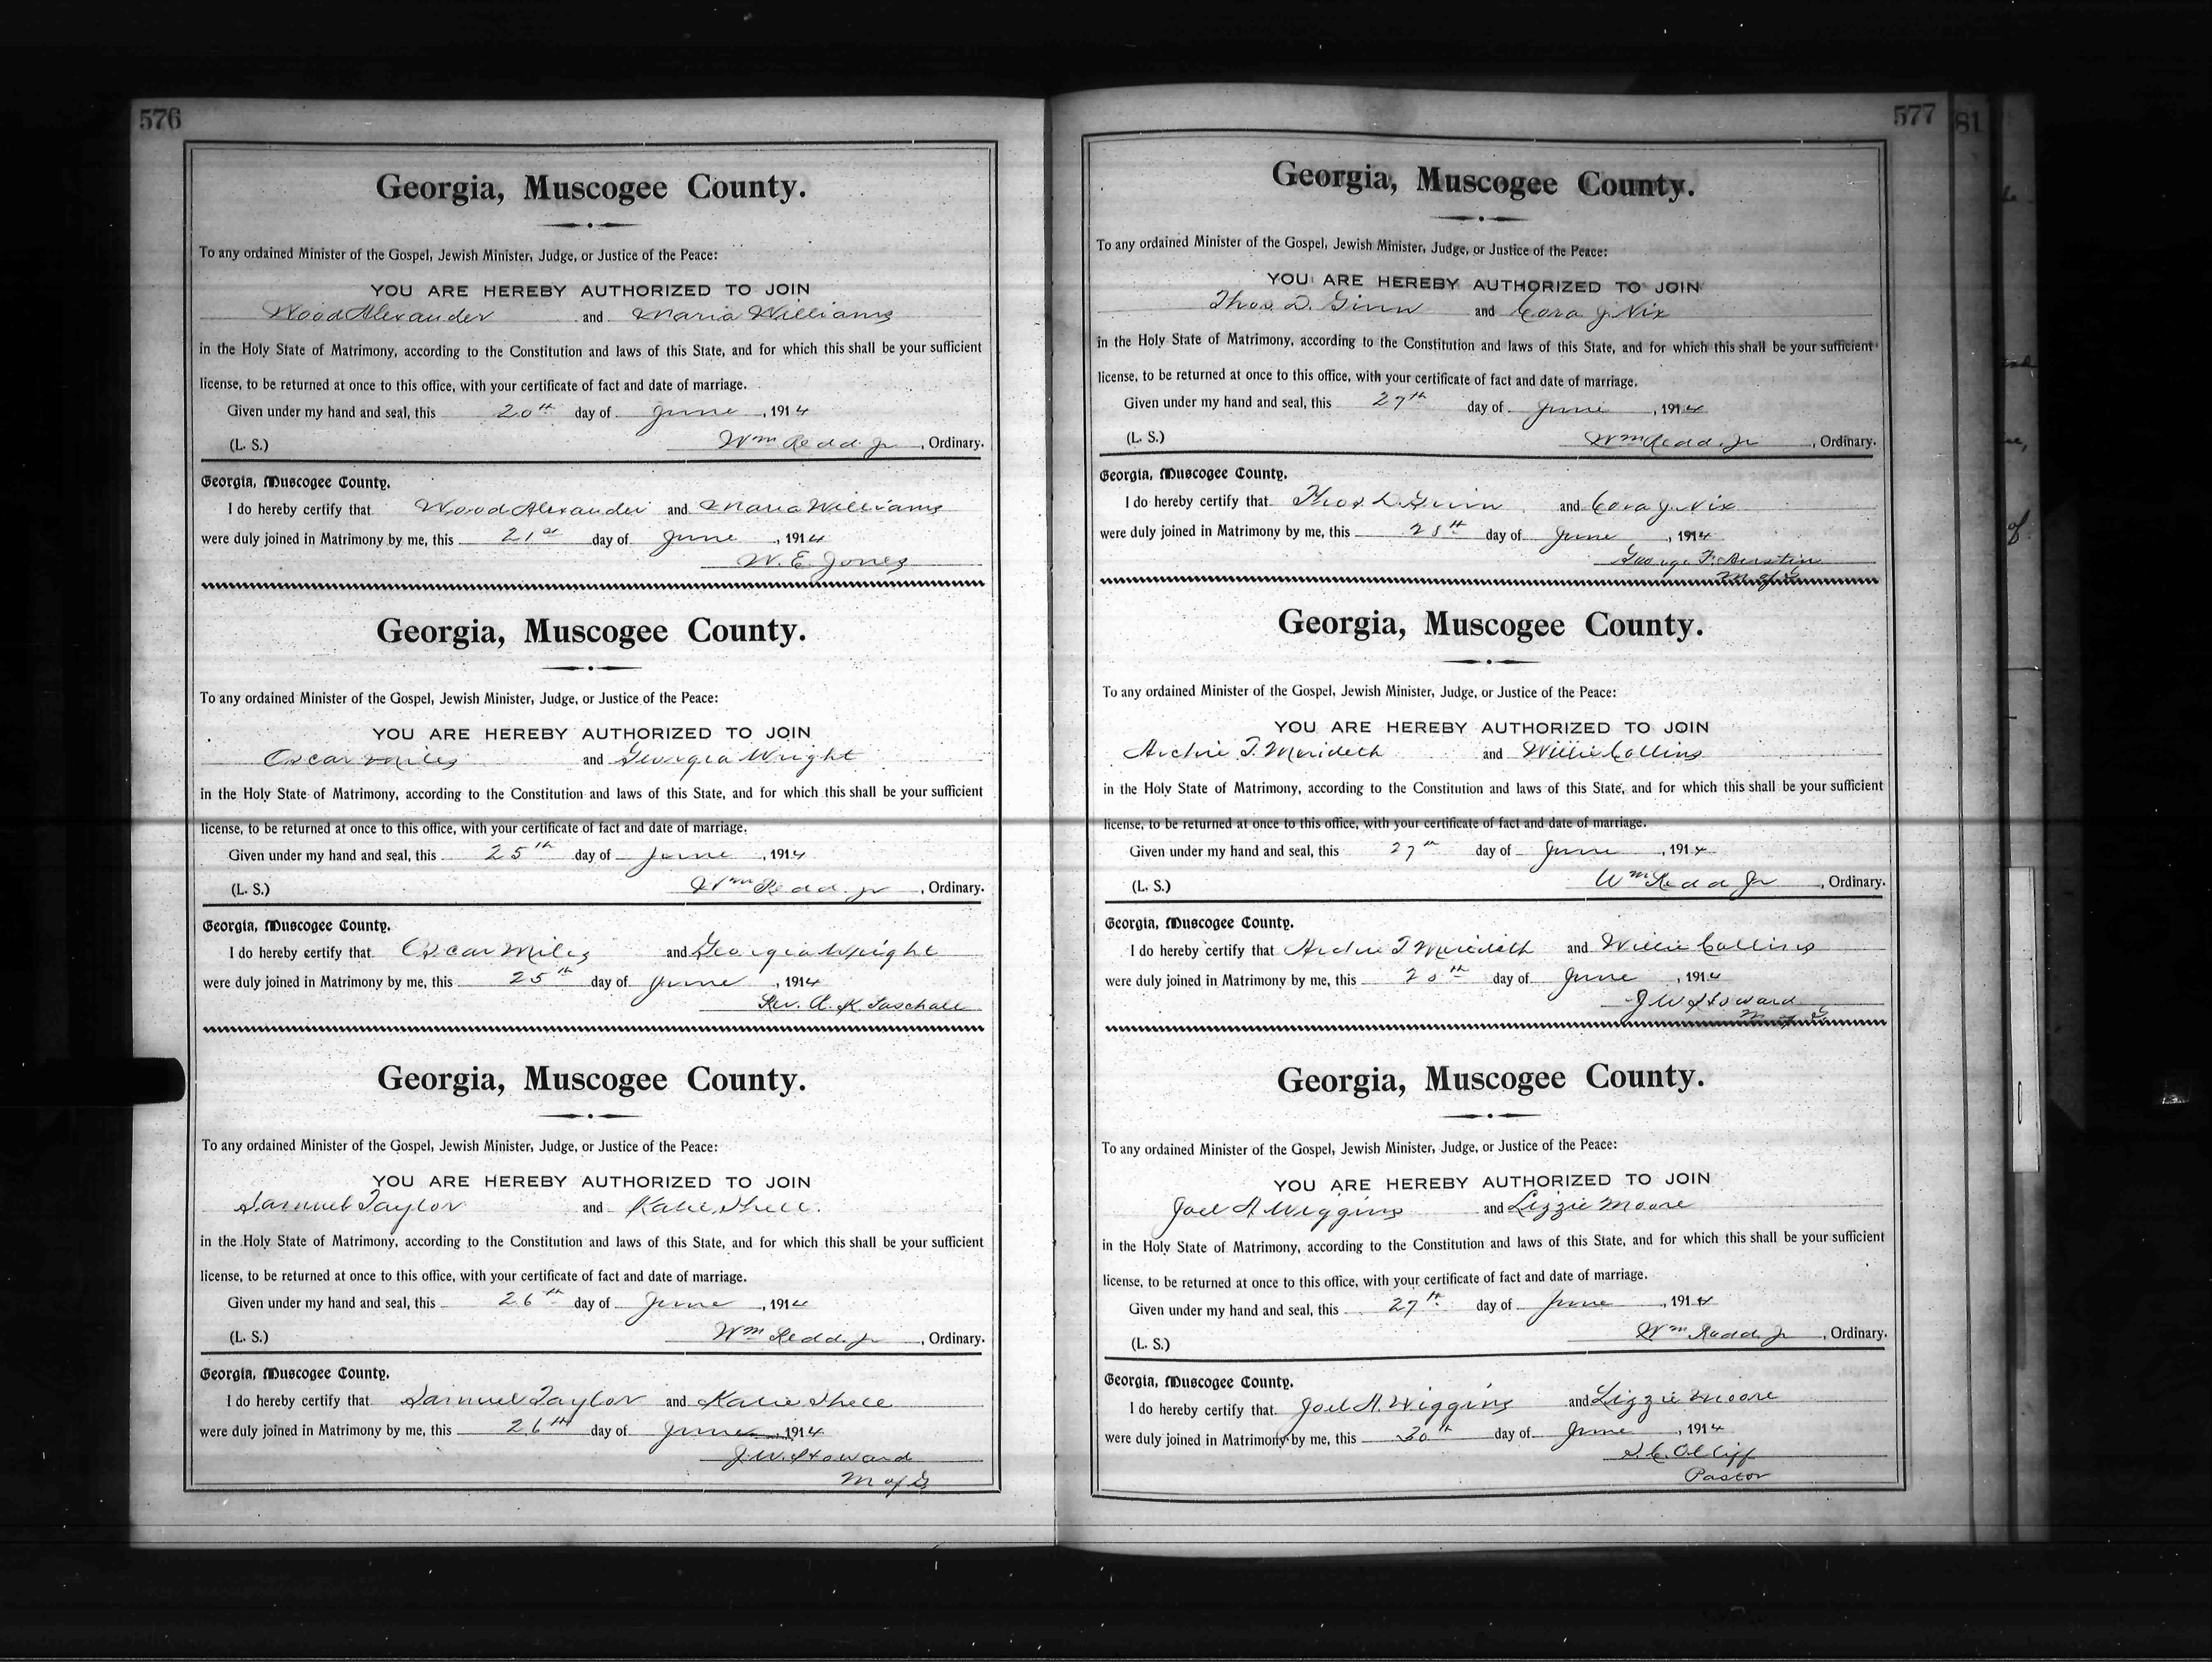 576
Georgia, Muscogee County.
To any ordained Minister of the Gospel, Jewish Minister, Judge, or Justice of the Peace:
YOU ARE HEREBY AUTHORIZED TO JOIN
Wood Alexander and Maria Williams
in the Holy State of Matrimony, according to the Constitution and laws of this State, and for which this shall be your sufficient
license, to be returned at once to this office, with your certificate of fact and date of marriage.
Given under my hand and seal, this 20th day of June, 1914
(L. S.) Wm Redd Jr, Ordinary.
Georgia, Muscogee County.
I do hereby certify that Wood Alexander and Maria Williams
were duly joined in Matrimony by me, this 21st day of June, 1914
W. E. Jones
Georgia, Muscogee County.
To any ordained Minister of the Gospel, Jewish Minister, Judge, or Justice of the Peace:
YOU ARE HEREBY AUTHORIZED TO JOIN
Oscar Miles and Georgia Wright
in the Holy State of Matrimony, according to the Constitution and laws of this State, and for which this shall be your sufficient
license, to be returned at once to this office, with your certificate of fact and date of marriage.
Given under my hand and seal, this 25th day of June, 1914
(L. S.) Wm Redd Jr, Ordinary.
Georgia, Muscogee County.
I do hereby certify that Oscar Miles and Georgia Wright
were duly joined in Matrimony by me, this 25th day of June, 1914
Rev. A. K.
Georgia, Muscogee County.
To any ordained Minister of the Gospel, Jewish Minister, Judge, or Justice of the Peace:
YOU ARE HEREBY AUTHORIZED TO JOIN
Samuel Taylor and Katie
in the Holy State of Matrimony, according to the Constitution and laws of this State, and for which this shall be your sufficient
license, to be returned at once to this office, with your certificate of fact and date of marriage.
Given under my hand and seal, this 26th day of June, 1914
(L. S.) Wm Redd Jr, Ordinary.
Georgia, Muscogee County.
I do hereby certify that Samuel Taylor and Katie
were duly joined in Matrimony by me, this 26th day of June, 1914
J. W. Howard
M of G
577
81
Georgia, Muscogee County.
To any ordained Minister of the Gospel, Jewish Minister, Judge, or Justice of the Peace:
YOU ARE HEREBY AUTHORIZED TO JOIN
Thos. D. Ginn and Cora J. Nix
in the Holy State of Matrimony, according to the Constitution and laws of this State, and for which this shall be your sufficient
license, to be returned at once to this office, with your certificate of fact and date of marriage.
Given under my hand and seal, this 27th day of June, 1914
(L. S.) Wm Redd. Jr, Ordinary.
Georgia, Muscogee County.
I do hereby certify that Thos. D. Ginn and Cora J. Nix
were duly joined in Matrimony by me, this 28th day of June, 1914
George F. Austin
M of G
Georgia, Muscogee County.
To any ordained Minister of the Gospel, Jewish Minister, Judge, or Justice of the Peace:
YOU ARE HEREBY AUTHORIZED TO JOIN
Archie T. Merideth and Willie Collins
in the Holy State of Matrimony, according to the Constitution and laws of this State, and for which this shall be your sufficient
license, to be returned at once to this office, with your certificate of fact and date of marriage.
Given under my hand and seal, this 27th day of June, 1914
(L. S.) Wm Redd Jr, Ordinary.
Georgia, Muscogee County.
I do hereby certify that Archie T Merideth and Willie Collins
were duly joined in Matrimony by me, this 28th day of June, 1914
J. W. Howard
M of G
Georgia, Muscogee County.
To any ordained Minister of the Gospel, Jewish Minister, Judge, or Justice of the Peace:
YOU ARE HEREBY AUTHORIZED TO JOIN
Joel A Wiggins and Lizzie Moore
in the Holy State of Matrimony, according to the Constitution and laws of this State, and for which this shall be your sufficient
license, to be returned at once to this office, with your certificate of fact and date of marriage.
Given under my hand and seal, this 27th day of June, 1914
(L. S.) Wm Redd Jr, Ordinary.
Georgia, Muscogee County.
I do hereby certify that Joel A. Wiggins and Lizzie Moore
were duly joined in Matrimony by me, this 30th day of June, 1914
S. C. Olliff
Pastor